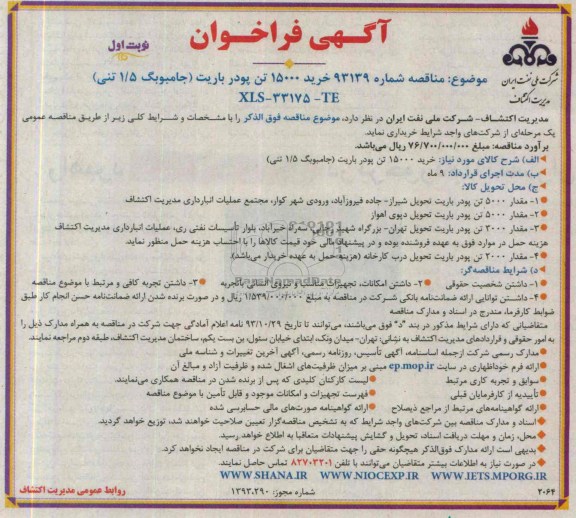 آگهی فراخوان
نوبت اول
شرکت ملی نفت ایران
مدیریت اکتشاف
موضوع: مناقصه شماره ۹۳۱۳۹ خرید ۱۵۰۰۰ تن پودر باریت (جامبوبگ ۱/۵ تنی)
XLS-۳۳۱۷۵ -TE
مدیریت اکتشاف- شرکت ملی نفت ایران در نظر دارد، موضوع مناقصه فوق الذکر را با مشخصات و شرایط کلی زیر از طریق مناقصه عمومی
یک مرحله‌ای از شرکت‌های واجد شرایط خریداری نماید.
برآورد مناقصه: مبلغ ۷۶/۷۰۰/۰۰۰/۰۰۰ ریال می‌باشد.
الف) شرح کالای مورد نیاز: خرید ۱۵۰۰۰ تن پودر باریت (جامبوبگ ۱/۵ تنی)
ب) مدت اجرای قرارداد: ۹ ماه
ج) محل تحویل کالا:
۱- مقدار ۵۰۰۰ تن پودر باریت تحویل شیراز- جاده فیروزآباد، ورودی شهر کوار، مجتمع عملیات انبارداری مدیریت اکتشاف
۲- مقدار ۵۰۰۰ تن پودر باریت تحویل دپوی اهواز
۳- مقدار ۳۰۰۰ تن پودر باریت تحویل تهران- بزرگراه شهید سه‌راه خیرآباد، بلوار تأسیسات نفتی ری، عملیات انبارداری مدیریت اکتشاف
هزینه حمل در موارد فوق به عهده فروشنده بوده و در پیشنهاد مالی خود قیمت کالاها را با احتساب هزینه حمل منظور نماید.
۴- مقدار ۲۰۰۰ تن پودر باریت تحویل درب کارخانه (هزینه حمل به عهده خریدار می‌باشد).
د) شرایط مناقصه‌گر:
۱- داشتن شخصیت حقوقی ۲- داشتن امکانات، تجهیزات مناسب و نیروی انسانی باتجربه ۳- داشتن تجربه کافی و مرتبط با موضوع مناقصه
۴- داشتن توانایی ارائه ضمانت‌نامه بانکی شرکت در مناقصه به مبلغ ۱/۵۳۹/۰۰۰/۰۰۰ ریال و در صورت برنده شدن ارائه ضمانت‌نامه حسن انجام کار طبق
ضوابط کارفرما، مندرج در اسناد و مدارک مناقصه
متقاضیانی که دارای شرایط مذکور در بند "د" فوق می‌باشند، می‌توانند تا تاریخ ۹۳/۱۰/۲۹ نامه اعلام آمادگی جهت شرکت در مناقصه به همراه مدارک ذیل را
به امور حقوقی و قراردادهای مدیریت اکتشاف به نشانی: تهران- میدان ونک، ابتدای خیابان سئول، بن بست یکم، ساختمان مدیریت اکتشاف، طبقه دوم مراجعه نمایند.
مدارک رسمی شرکت ازجمله اساسنامه، آگهی تأسیس، روزنامه رسمی، آگهی آخرین تغییرات و شناسه ملی
ارائه فرم خوداظهاری در سایت ep.mop.ir مبنی بر میزان ظرفیت‌های اشغال شده و ظرفیت آزاد و مبالغ آن
سوابق و تجربه کاری مرتبط لیست کارکنان کلیدی که پس از برنده شدن در مناقصه همکاری می‌نمایند.
تأییدیه از کارفرمایان قبلی فهرست تجهیزات و امکانات موجود و قابل تأمین با موضوع مناقصه
ارائه گواهینامه‌های مرتبط از مراجع ذیصلاح ارائه گواهینامه صورت‌های مالی حسابرسی شده
اسناد و مدارک مناقصه بین شرکت‌های واجد شرایط که به تشخیص مناقصه‌گزار تعیین صلاحیت خواهند شد، توزیع خواهد گردید.
محل، زمان و مهلت دریافت اسناد، تحویل و گشایش پیشنهادات متعاقبا به اطلاع خواهد رسید.
بدیهی است ارائه مدارک فوق‌الذکر هیچگونه حقی را جهت متقاضیان برای شرکت در مناقصه ایجاد نخواهد کرد.
در صورت نیاز به اطلاعات بیشتر متقاضیان می‌توانند با تلفن ۸۲۷۰۳۲۰۱ تماس حاصل نمایند.
WWW.SHANA.IR WWW.NIOCEXP.IR WWW.IETS.MPORG.IR
۲۰۶۴ شماره مجوز: ۱۳۹۳،۲۹۰ روابط عمومی مدیریت اکتشاف